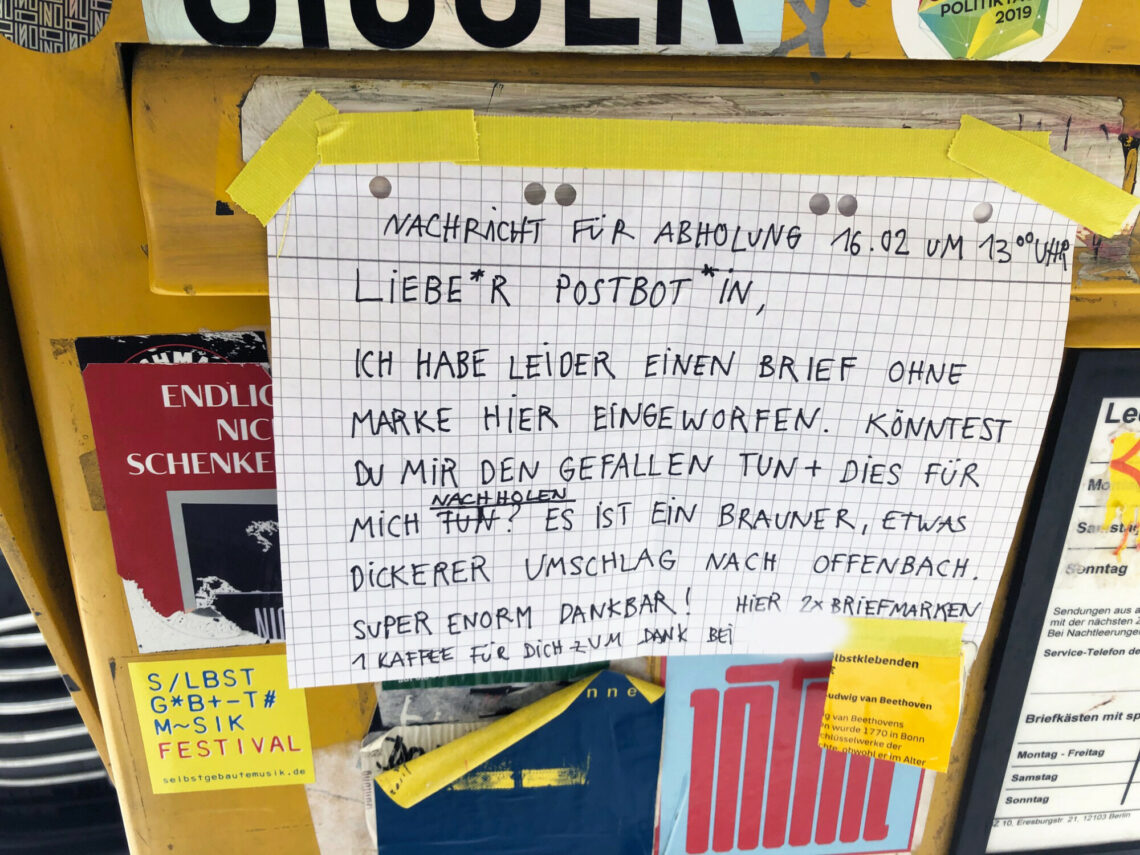 POLITIKTA
2019
NACHRICHT FÜR ABHOLUNG 16.02 UM 13⁰⁰UHR
LIEBE*R POSTBOT*IN,
ICH HABE LEIDER EINEN BRIEF OHNE
MARKE HIER EINGEWORFEN. KÖNNTEST
DU MIR DEN GEFALLEN TUN + DIES FÜR
NACHHOLEN
MICH TUN? ES IST EIN BRAUNER, ETWAS
DICKERER UMSCHLAG NACH OFFENBACH.
SUPER ENORM DANKBAR! HIER 2x BRIEFMARKEN
1 KAFFEE FÜR DICH ZUM DANK BEI
ENDLIC
NIC
SCHENKE
NI
S/LBST
G*B+-T#
M~SIK
FESTIVAL
selbstgebautemusik.de
nne
lbstklebenden
udwig van Beethoven
g van Beethovens
n wurde 1770 in Bonn
chlüsselwerke der
chte, obwohl er im Alter
Le
Mo
Samst
Sonntag
Sendungen aus a
mit der nächsten
Bei Nachtleerungen
Service-Telefon de
Briefkästen mit sp
Montag - Freitag
Samstag
Sonntag
Z 10, Eresburgstr. 21, 12103 Berlin